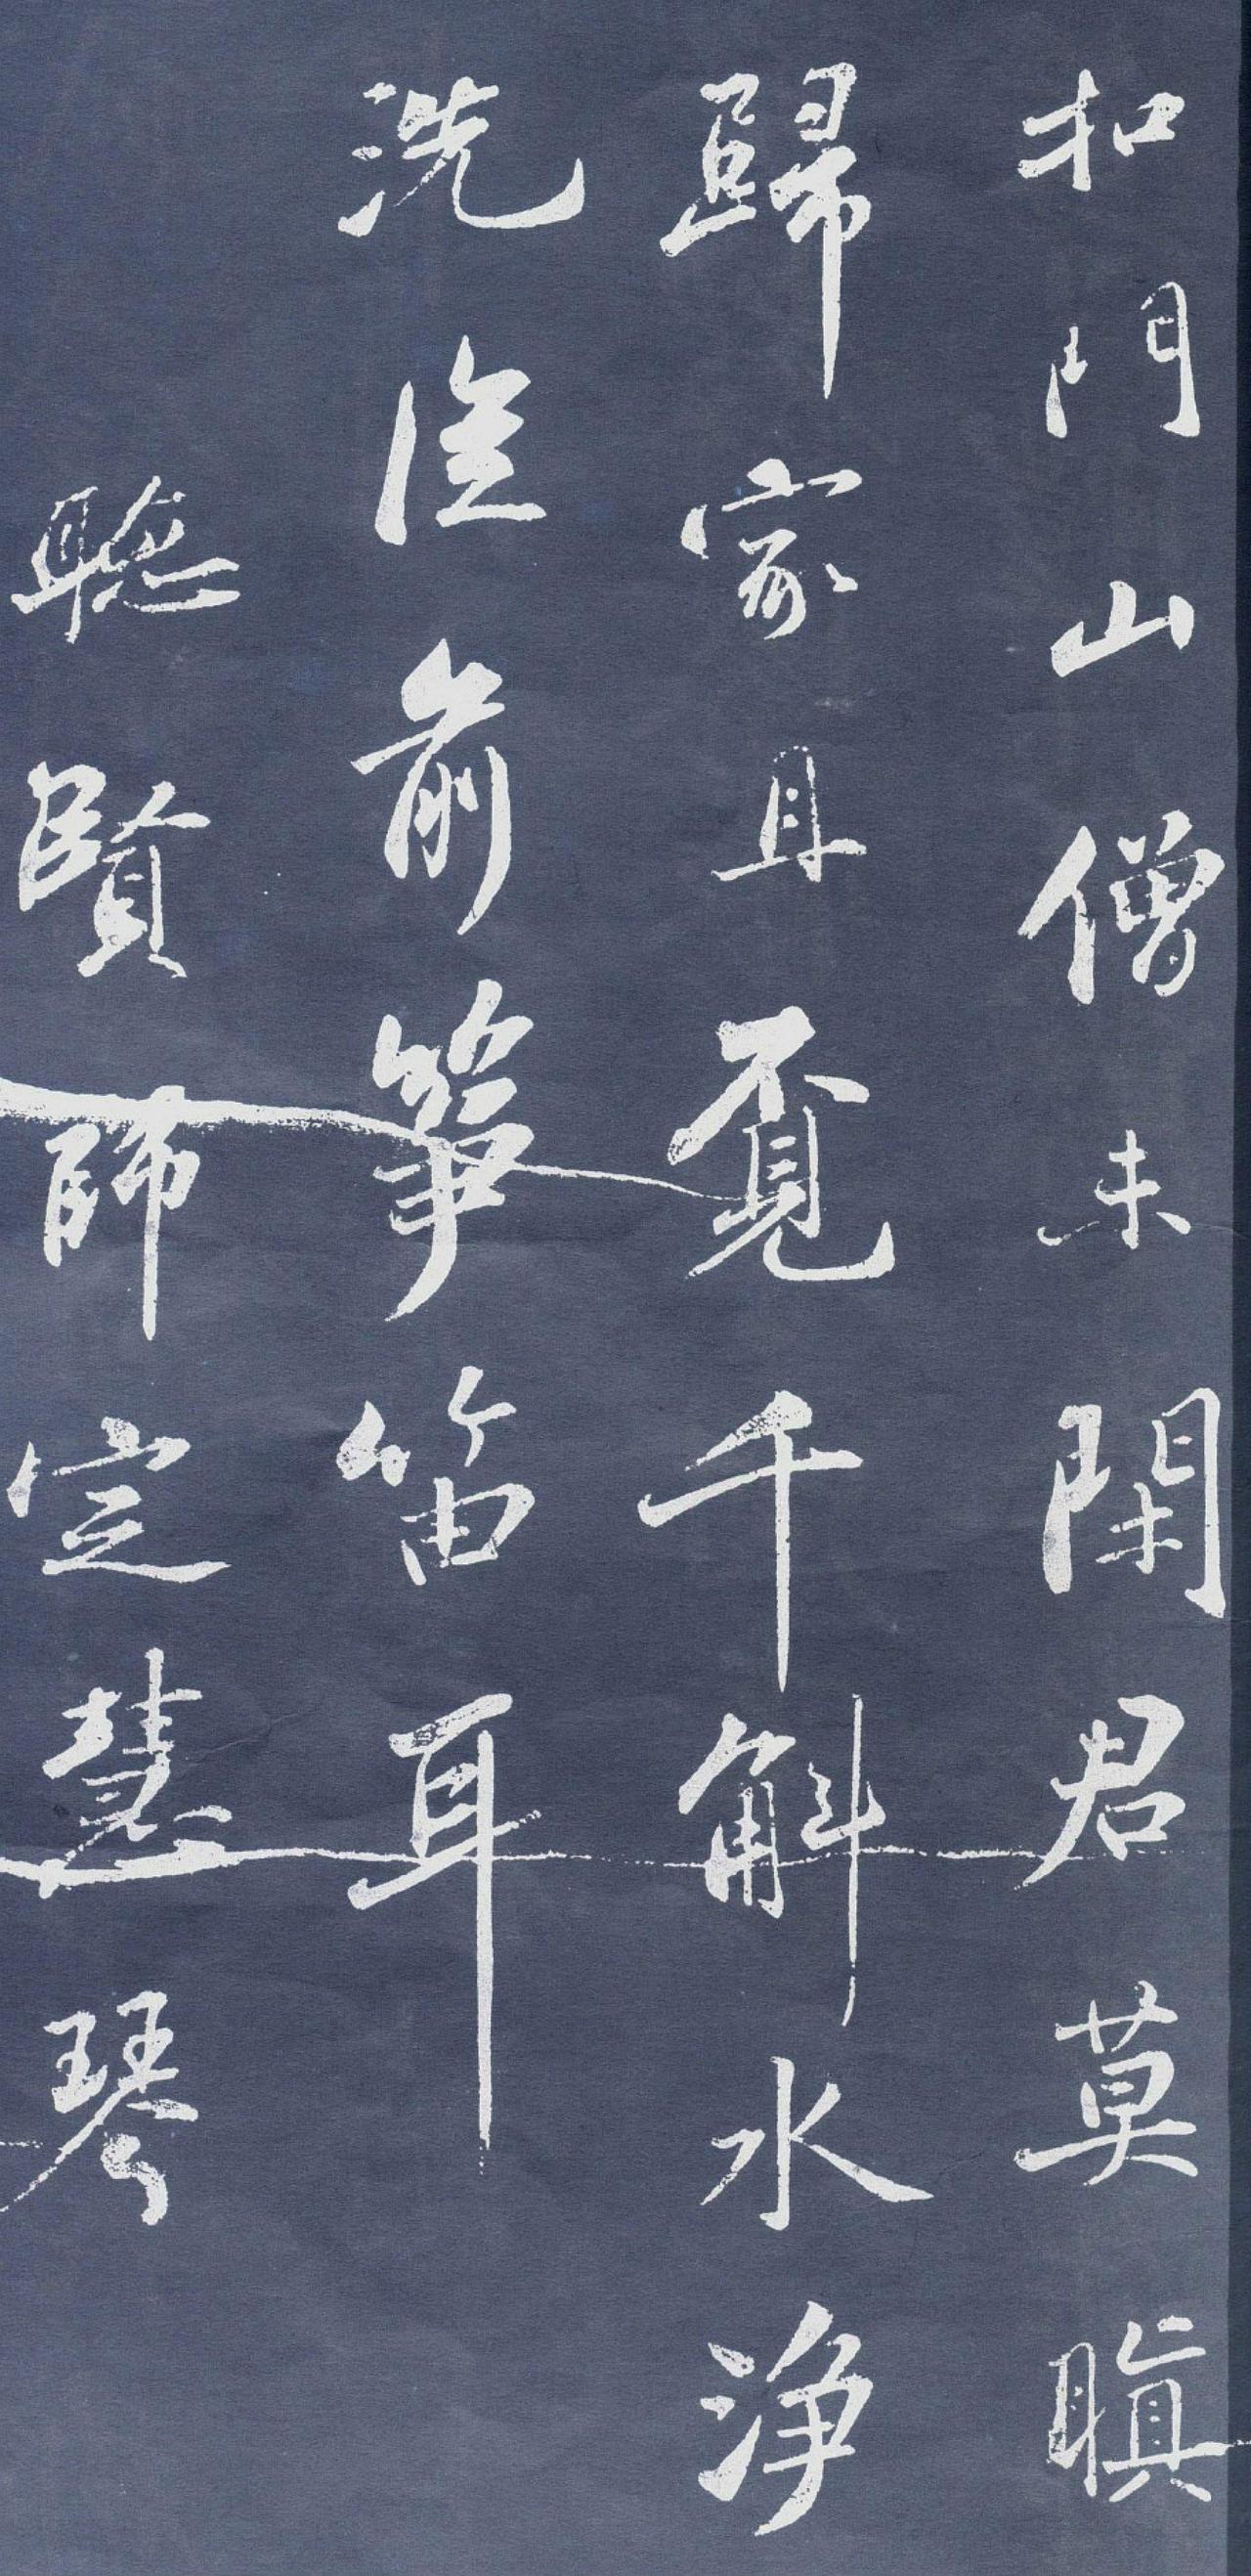 扣門山僧未閑君莫瞋
歸家且覔千斛水浄
洗從前箏笛耳
聽賢師定慧琴